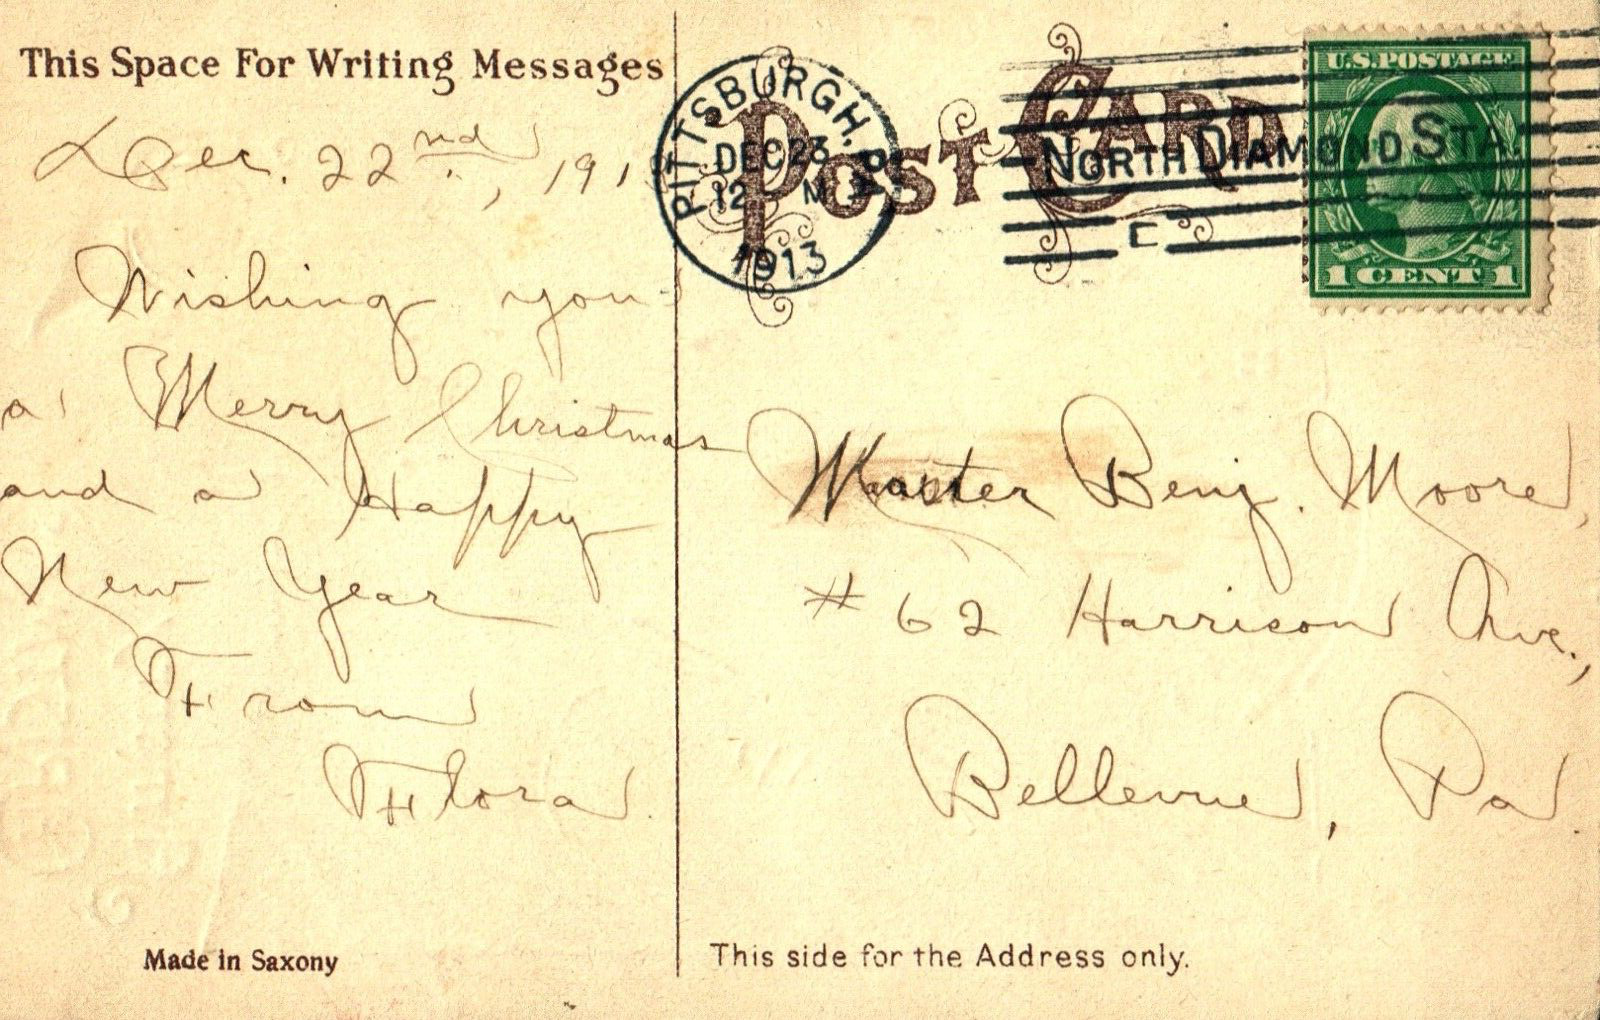 This Space For Writing Messages
Dec. 22nd, 191
Wishing you
a Merry Christmas
and a Happy
New Year
From
Flora.
Made in Saxony
POST CARD
PITTSBURGH, PA.
DEC 23
12 M
1913
NORTH DIAMOND STA.
E
U.S. POSTAGE
1 CENT 1
Master Benj. Moore,
# 62 Harrison Ave.,
Bellevue, Pa.
This side for the Address only.